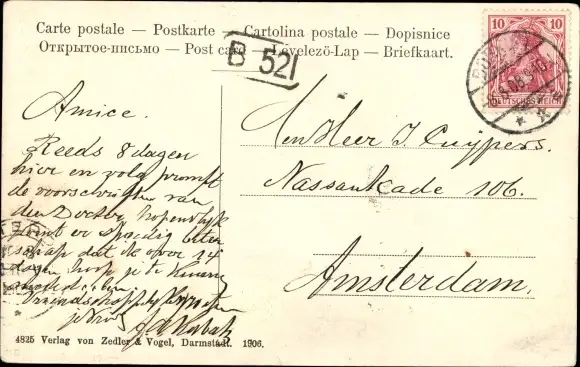 Carte postale — Postkarte — Cartolina postale — Dopisnice
Открытое-письмо — Post card — Levelező-Lap — Briefkaart.
B 52
10 10
DEUTSCHES REICH
Amice.
Reeds 8 dagen
hier en volg prompt
de voorschriften van
den Doctor, hopendlijk
komt er spoedig beter
schap dat ik over 14
dagen hoop je te kunnen
Vriendschappelijk
Den Heer J. Cuypers.
Nassaukade 106.
Amsterdam.
4825 Verlag von Zedler & Vogel, Darmstadt. 1906.